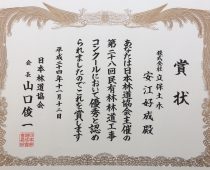 賞状
株式会社 立保土木
安江好成殿
あなたは日本林道協会主催の
第二十八回民有林林道工事
コンクールにおいて優秀と認め
られましたのでこれを賞します
平成二十四年十一月十二日
日本林道協会
会長 山口俊一